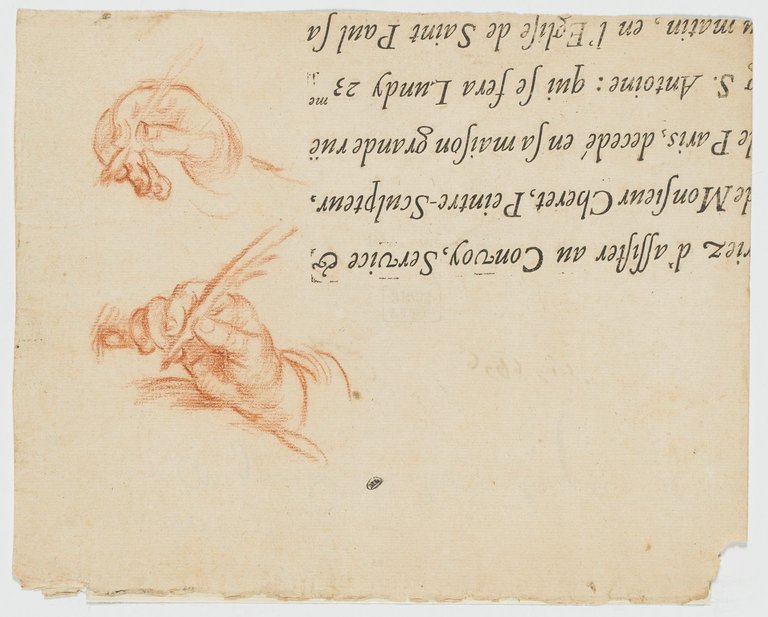 riez d'aſſiſter au Convoy, Service &
de Monſieur Cheret, Peintre-Sculpteur,
le Paris, decedé en ſa maiſon grande ruë
S. Antoine : qui ſe fera Lundy 23 me
matin, en l'Egliſe de Saint Paul ſa